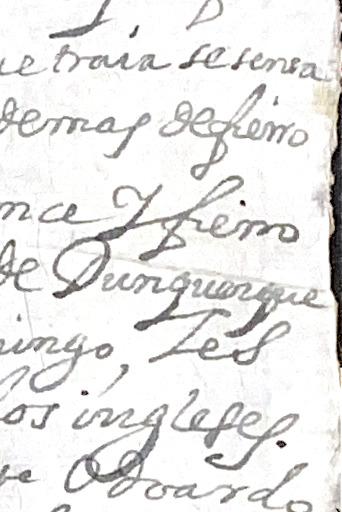 ue traia sesensa
demas de fierro
nce Y fierro
de Dunquerque
ingo, Les
los ingleses.
Odoardo